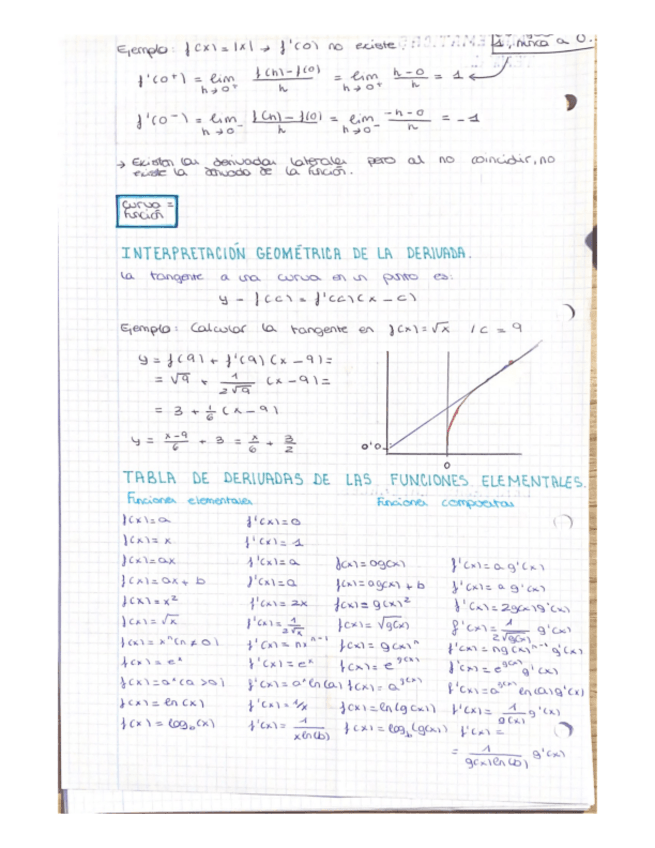 Ejemplo: f(x) = |x| → f'(0) no existe
1, nunca a 0.
f'(0⁺) = lim h→0⁺ f(h)-f(0)/h = lim h→0⁺ h-0/h = 1
f'(0⁻) = lim h→0⁻ f(h)-f(0)/h = lim h→0⁻ -h-0/h = -1
→ Existen las derivadas laterales pero al no coincidir, no
existe la derivada de la función.
Curva =
Función
INTERPRETACIÓN GEOMÉTRICA DE LA DERIVADA.
La tangente a una curva en un punto es:
y - f(c) = f'(c)(x-c)
Ejemplo: Calcular la tangente en f(x)=√x / c = 9
y = f(9) + f'(9)(x-9) =
= √9 + 1/2√9 (x-9) =
= 3 + 1/6 (x-9)
y = x-9/6 + 3 = x/6 + 3/2
0'0
0
TABLA DE DERIVADAS DE LAS FUNCIONES ELEMENTALES.
Funciones elementales Funciones compuestas
f(x)=a f'(x)=0
f(x)=x f'(x)=1
f(x)=ax f'(x)=a f(x)=ag(x) f'(x)=a g'(x)
f(x)=ax+b f'(x)=a f(x)=ag(x)+b f'(x)=a g'(x)
f(x)=x² f'(x)=2x f(x)=g(x)² f'(x)=2g(x)g'(x)
f(x)=√x f'(x)=1/2√x f(x)=√g(x) f'(x)=1/2√g(x) g'(x)
f(x)=xⁿ(n≠0) f'(x)=nxⁿ⁻¹ f(x)=g(x)ⁿ f'(x)=ng(x)ⁿ⁻¹g'(x)
f(x)=eˣ f'(x)=eˣ f(x)=e^g(x) f'(x)=e^g(x) g'(x)
f(x)=aˣ(a>0) f'(x)=aˣln(a) f(x)=a^g(x) f'(x)=a^g(x) ln(a)g'(x)
f(x)=ln(x) f'(x)=1/x f(x)=ln(g(x)) f'(x)=1/g(x) g'(x)
f(x)=log_b(x) f'(x)=1/xln(b) f(x)=log_b(g(x)) f'(x)=
= 1/g(x)ln(b) g'(x)